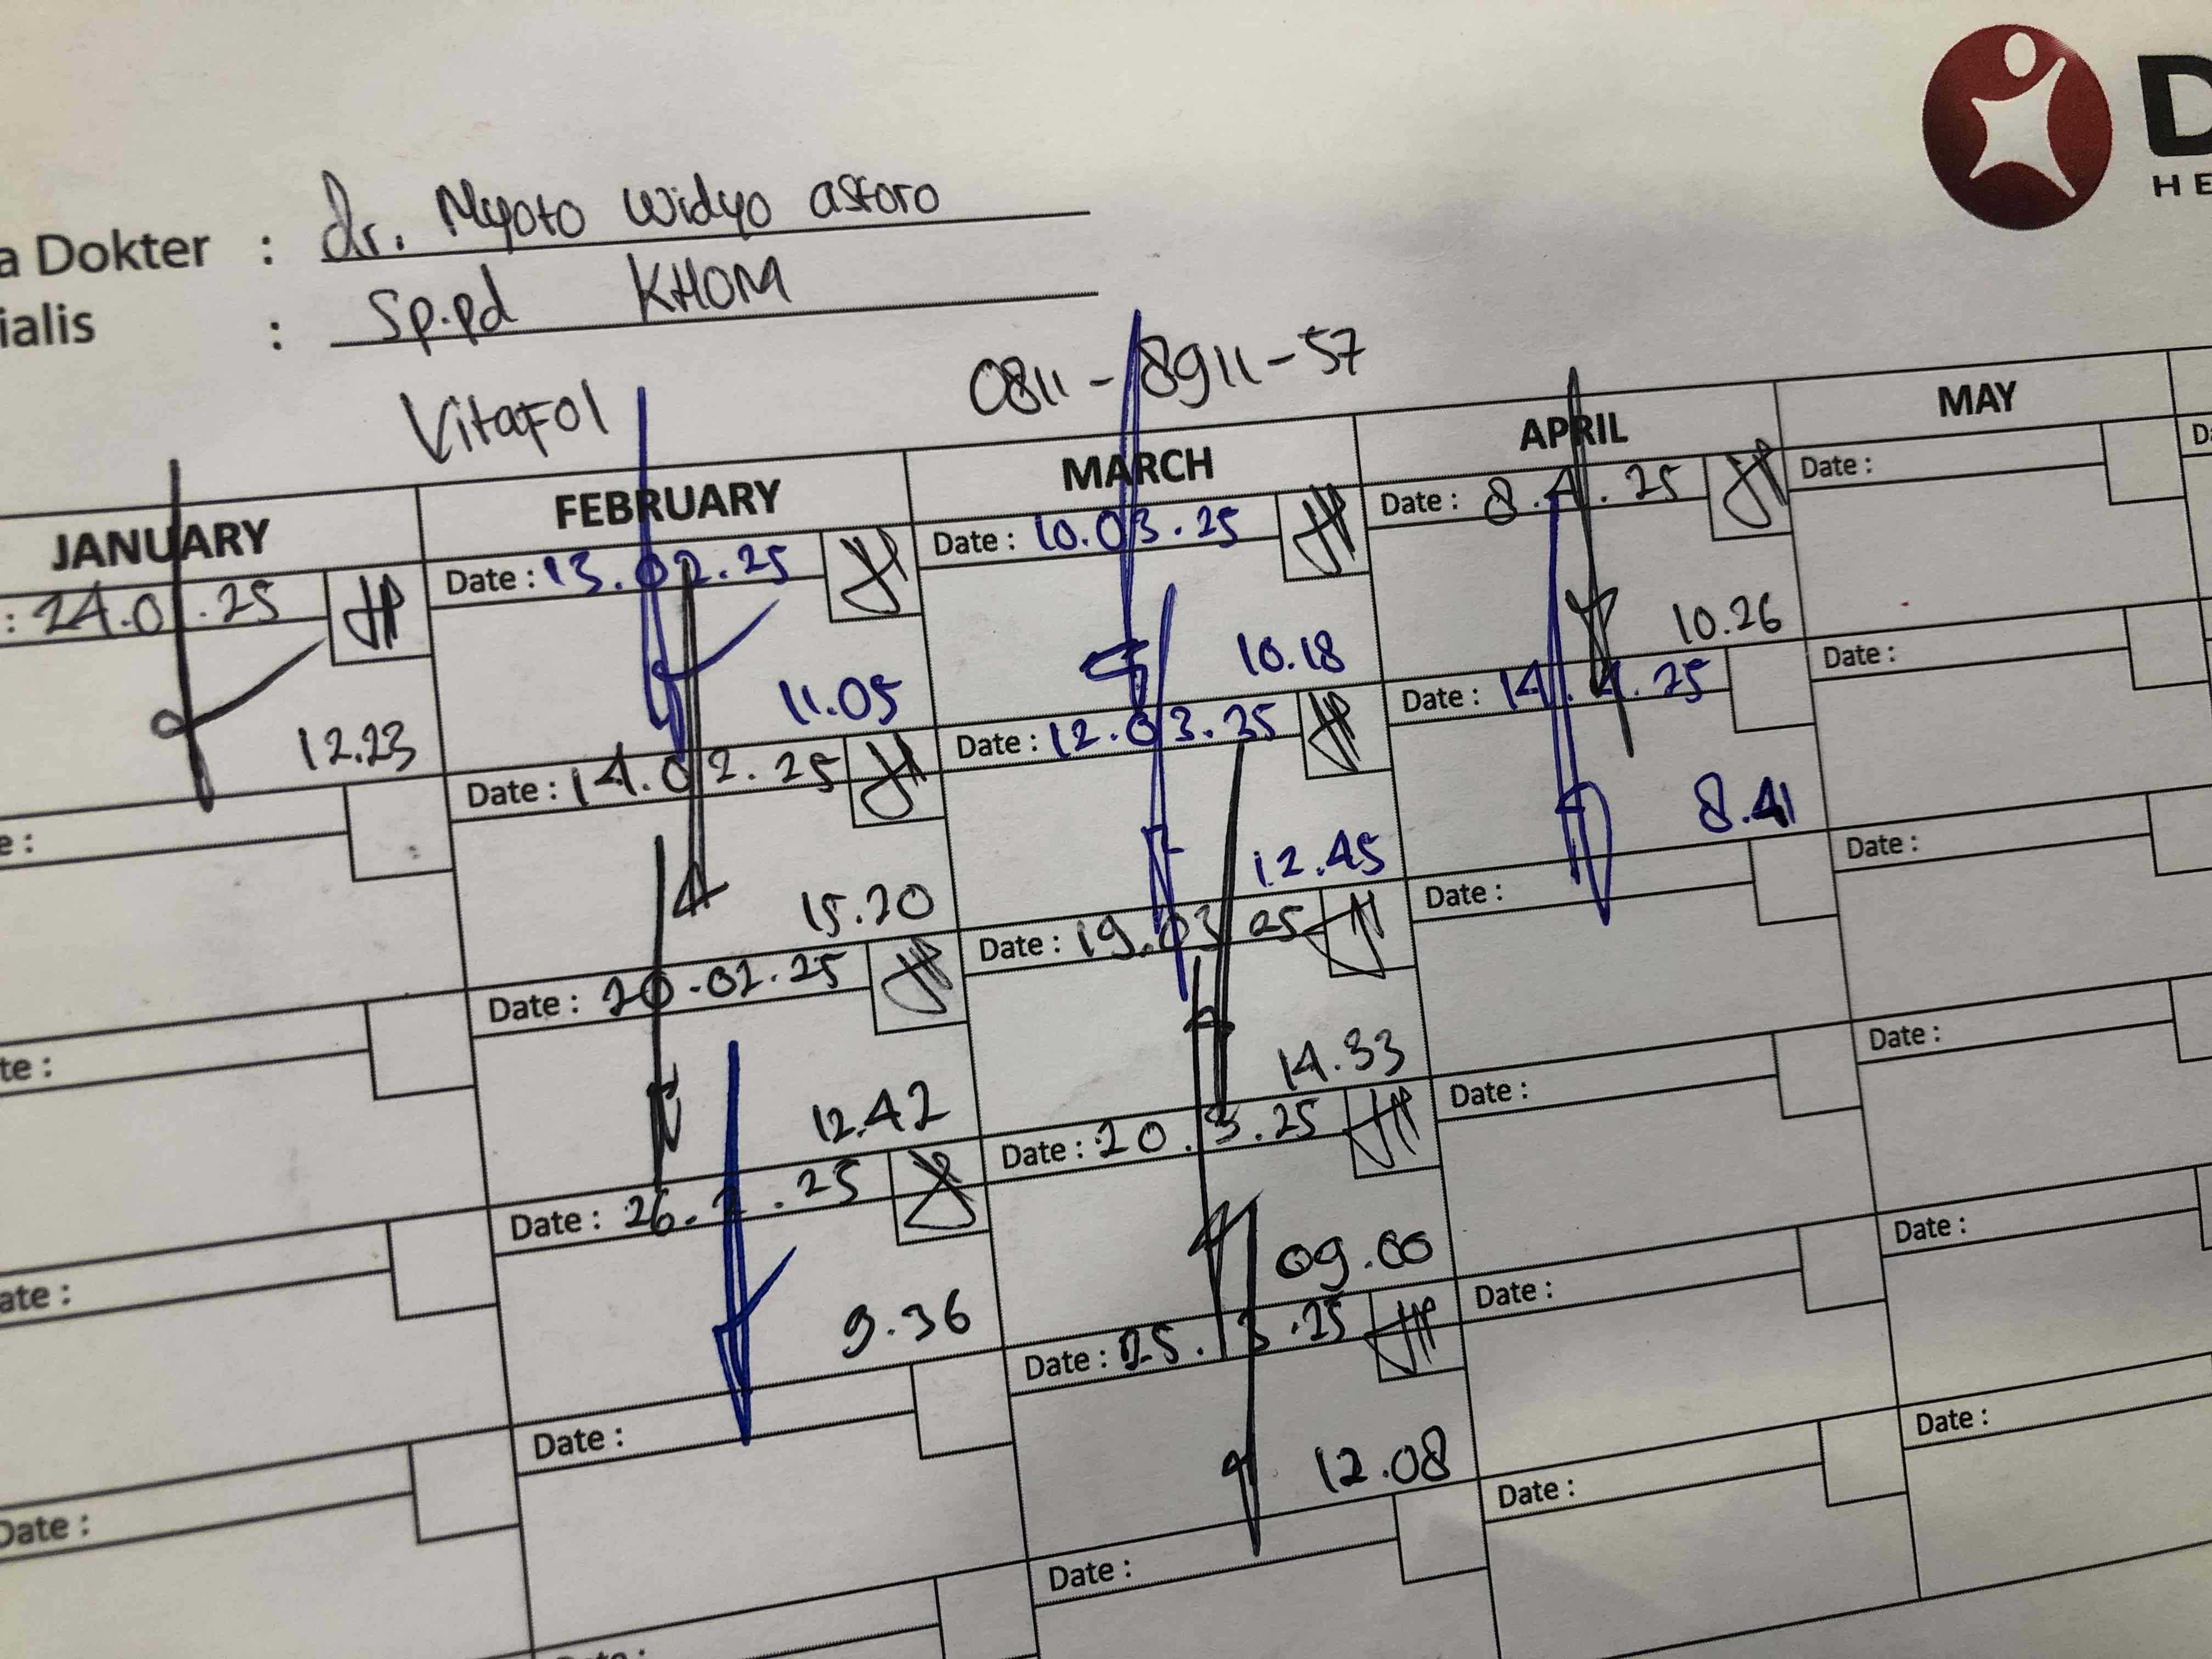 D
HE
a Dokter : dr. Nyoto Widyo astoro
ialis : Sp.pd KHOM
Vitafol 0811-8911-57
JANUARY FEBRUARY MARCH APRIL MAY
: 24.01.25 Date : 13.02.25 Date : 10.03.25 Date : 8.4.25 Date : Da
12.23 11.05 10.18 10.26
e : Date : 14.02.25 Date : 12.03.25 Date : 14.4.25 Date :
15.20 12.45 8.41
te : Date : 20.02.25 Date : 19.03.25 Date : Date :
12.42 14.33
ate : Date : 26.2.25 Date : 20.3.25 Date : Date :
9.36 09.00
Date : Date : Date : 25.3.25 Date : Date :
12.08
Date : Date : Date : Date :